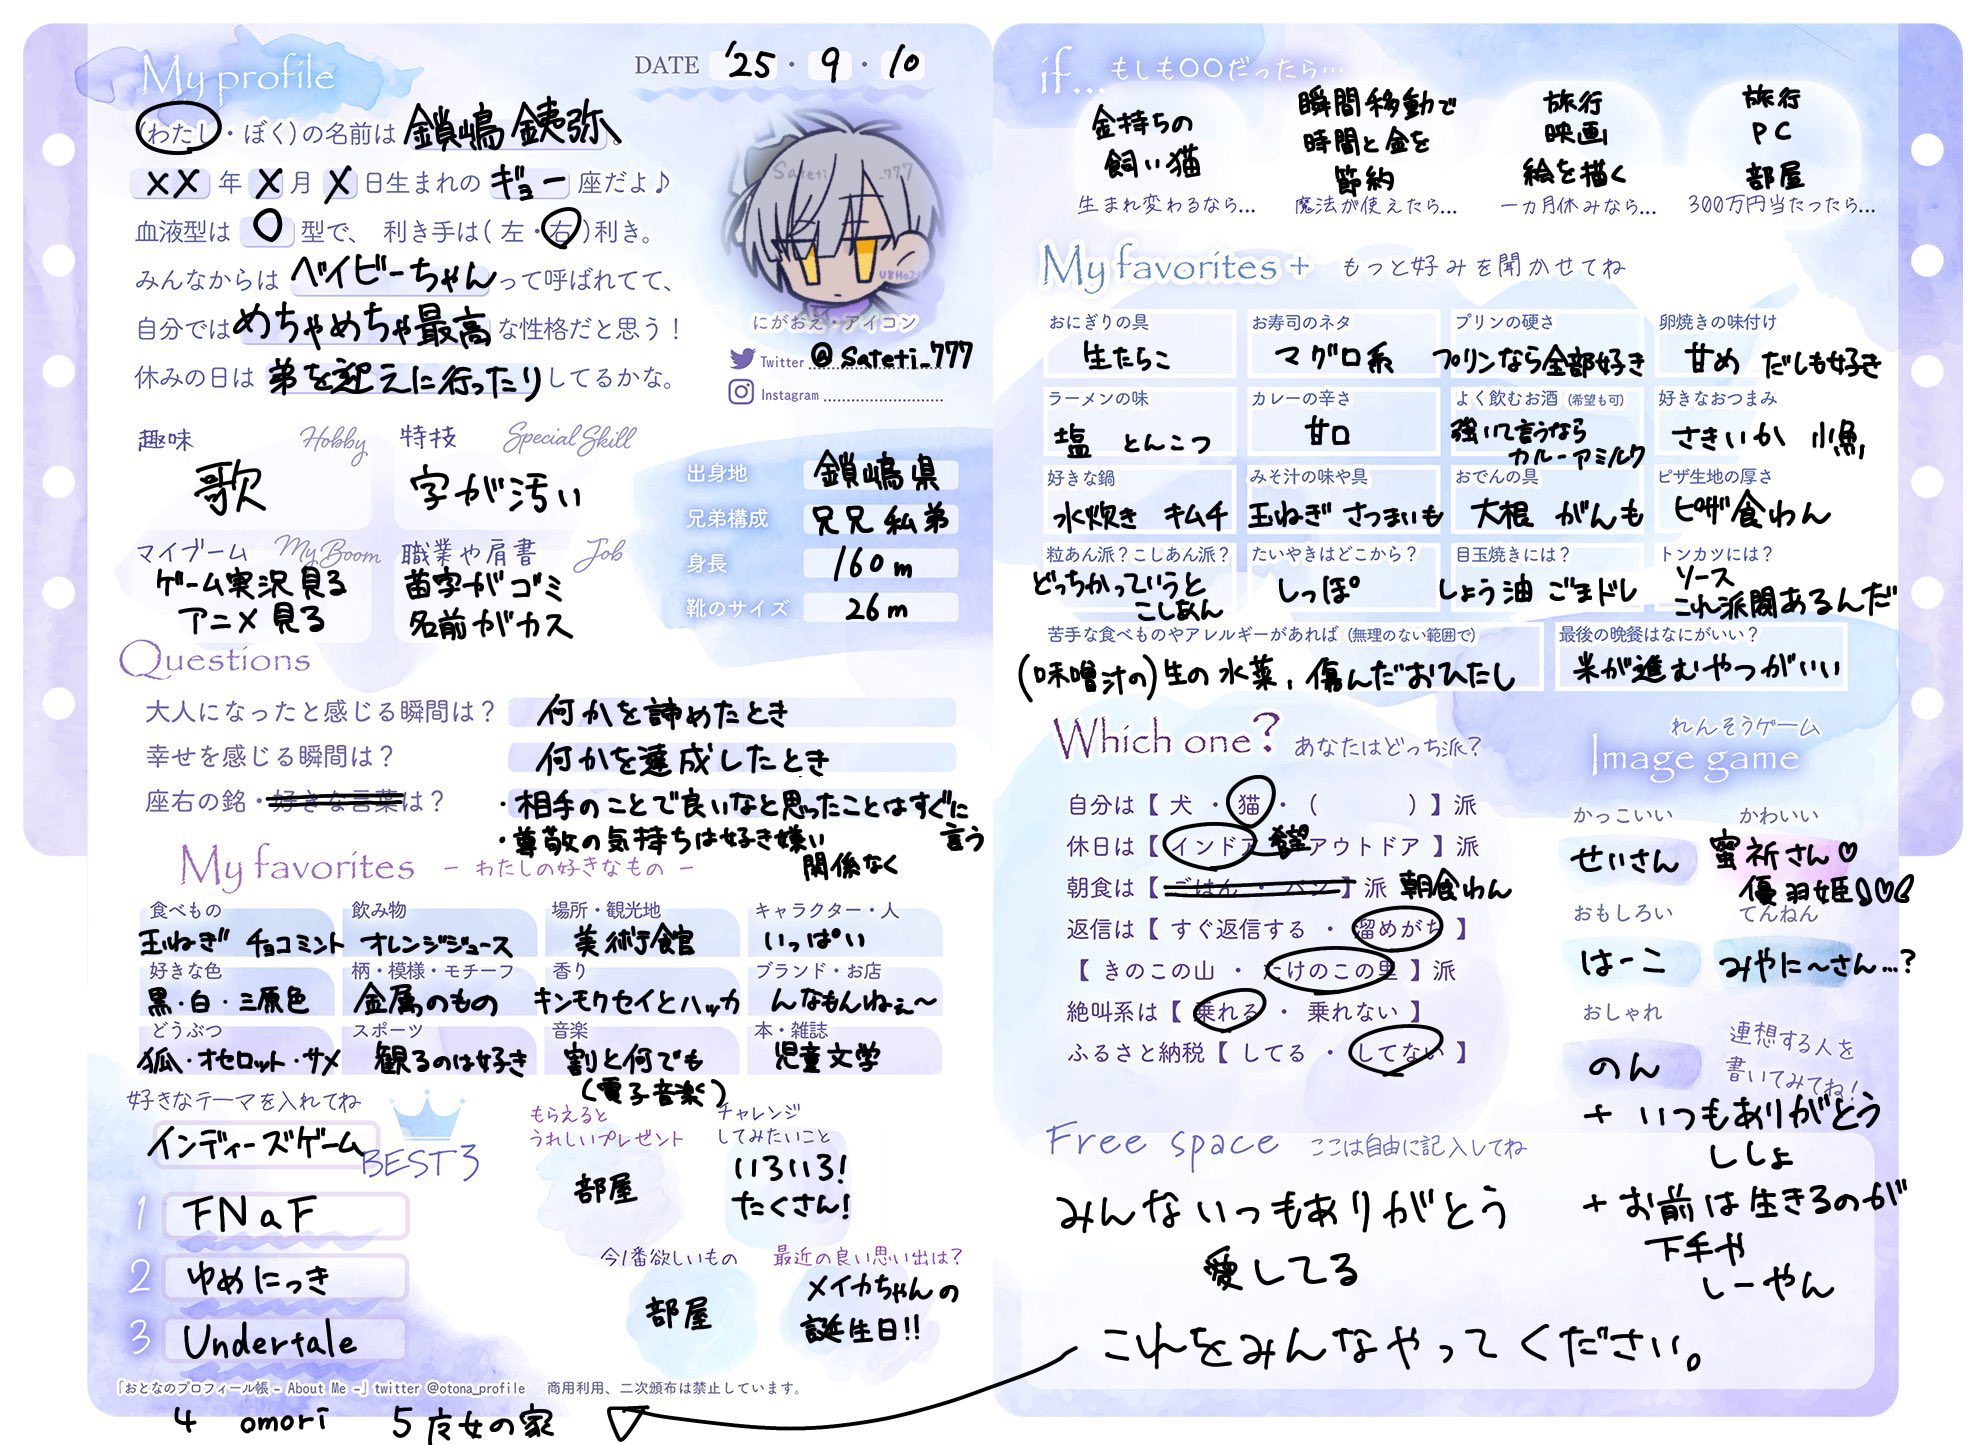 My profile
DATE '25・9・10
(わたし・ぼく)の名前は 鎖嶋 銕弥。
××年×月×日生まれのギョー座だよ♪
血液型はO型で、 利き手は(左・右)利き。
みんなからは ベイビーちゃんって呼ばれてて、
自分ではめちゃめちゃ最高な性格だと思う!
休みの日は 弟を迎えに行ったりしてるかな。
Sateti_777
にがおえ・アイコン
Twitter @Sateti_777
Instagram
趣味 Hobby
歌
特技 Special Skill
字が汚い
マイブーム My Boom
ゲーム実況見る
アニメ見る
職業や肩書 Job
苗字がゴミ
名前がカス
出身地 鎖嶋県
兄弟構成 兄兄私弟
身長 160m
靴のサイズ 26m
Questions
大人になったと感じる瞬間は? 何かを諦めたとき
幸せを感じる瞬間は? 何かを達成したとき
座右の銘・好きな言葉は? ・相手のことで良いなと思ったことはすぐに言う
・尊敬の気持ちは好き嫌い関係なく
My favorites - わたしの好きなもの -
食べもの
玉ねぎ チョコミント
飲み物
オレンジジュース
場所・観光地
美術館
キャラクター・人
いっぱい
好きな色
黒・白・三原色
柄・模様・モチーフ
金属のもの
香り
キンモクセイとハッカ
ブランド・お店
んなもんねぇ〜
どうぶつ
狐・オセロット・サメ
スポーツ
観るのは好き
音楽
割と何でも
(電子音楽)
本・雑誌
児童文学
好きなテーマを入れてね
インディーズゲーム
BEST3
1 FNaF
2 ゆめにっき
3 Undertale
もらえると
うれしいプレゼント
部屋
チャレンジ
してみたいこと
いろいろ!
たくさん!
今1番欲しいもの
部屋
最近の良い思い出は?
メイカちゃんの
誕生日!!
「おとなのプロフィール帳 - About Me -」twitter @otona_profile 商用利用、二次頒布は禁止しています。
4 omori 5 女の家
if... もしも○○だったら…
金持ちの
飼い猫
生まれ変わるなら…
瞬間移動で
時間と金を
節約
魔法が使えたら…
旅行
映画
絵を描く
一ヵ月休みなら…
旅行
PC
部屋
300万円当たったら…
My favorites + もっと好みを聞かせてね
おにぎりの具
生たらこ
お寿司のネタ
マグロ系
プリンの硬さ
プリンなら全部好き
卵焼きの味付け
甘め だしも好き
ラーメンの味
塩 とんこつ
カレーの辛さ
甘口
よく飲むお酒 (希望も可)
強いて言うなら
カルーアミルク
好きなおつまみ
さきいか 小魚
好きな鍋
水炊き キムチ
みそ汁の味や具
玉ねぎ さつまいも
おでんの具
大根 がんも
ピザ生地の厚さ
ピザ食わん
粒あん派?こしあん派?
どっちかっていうと
こしあん
たいやきはどこから?
しっぽ
目玉焼きには?
しょう油 ごまドレ
トンカツには?
ソース
これ派閥あるんだ
苦手な食べものやアレルギーがあれば (無理のない範囲で)
(味噌汁の)生の水菜、傷んだおひたし
最後の晩餐はなにがいい?
米が進むやつがいい
Which one? あなたはどっち派?
自分は【 犬 ・ 猫 ・ ( ) 】派
休日は【 インドア 希望 アウトドア 】派
朝食は【 ごはん ・ パン 】派 朝食わん
返信は【 すぐ返信する ・ 溜めがち 】
【 きのこの山 ・ たけのこの里 】派
絶叫系は【 乗れる ・ 乗れない 】
ふるさと納税【 してる ・ してない 】
れんそうゲーム
Image game
かっこいい
せいさん
かわいい
蜜祈さん♡
優羽姫
おもしろい
はーこ
てんねん
みやに〜さん…?
おしゃれ
のん
連想する人を
書いてみてね!
+ いつもありがとう
ししょ
+ お前は生きるのが
下手や
しーやん
Free space ここは自由に記入してね
みんないつもありがとう
愛してる
これをみんなやってください。